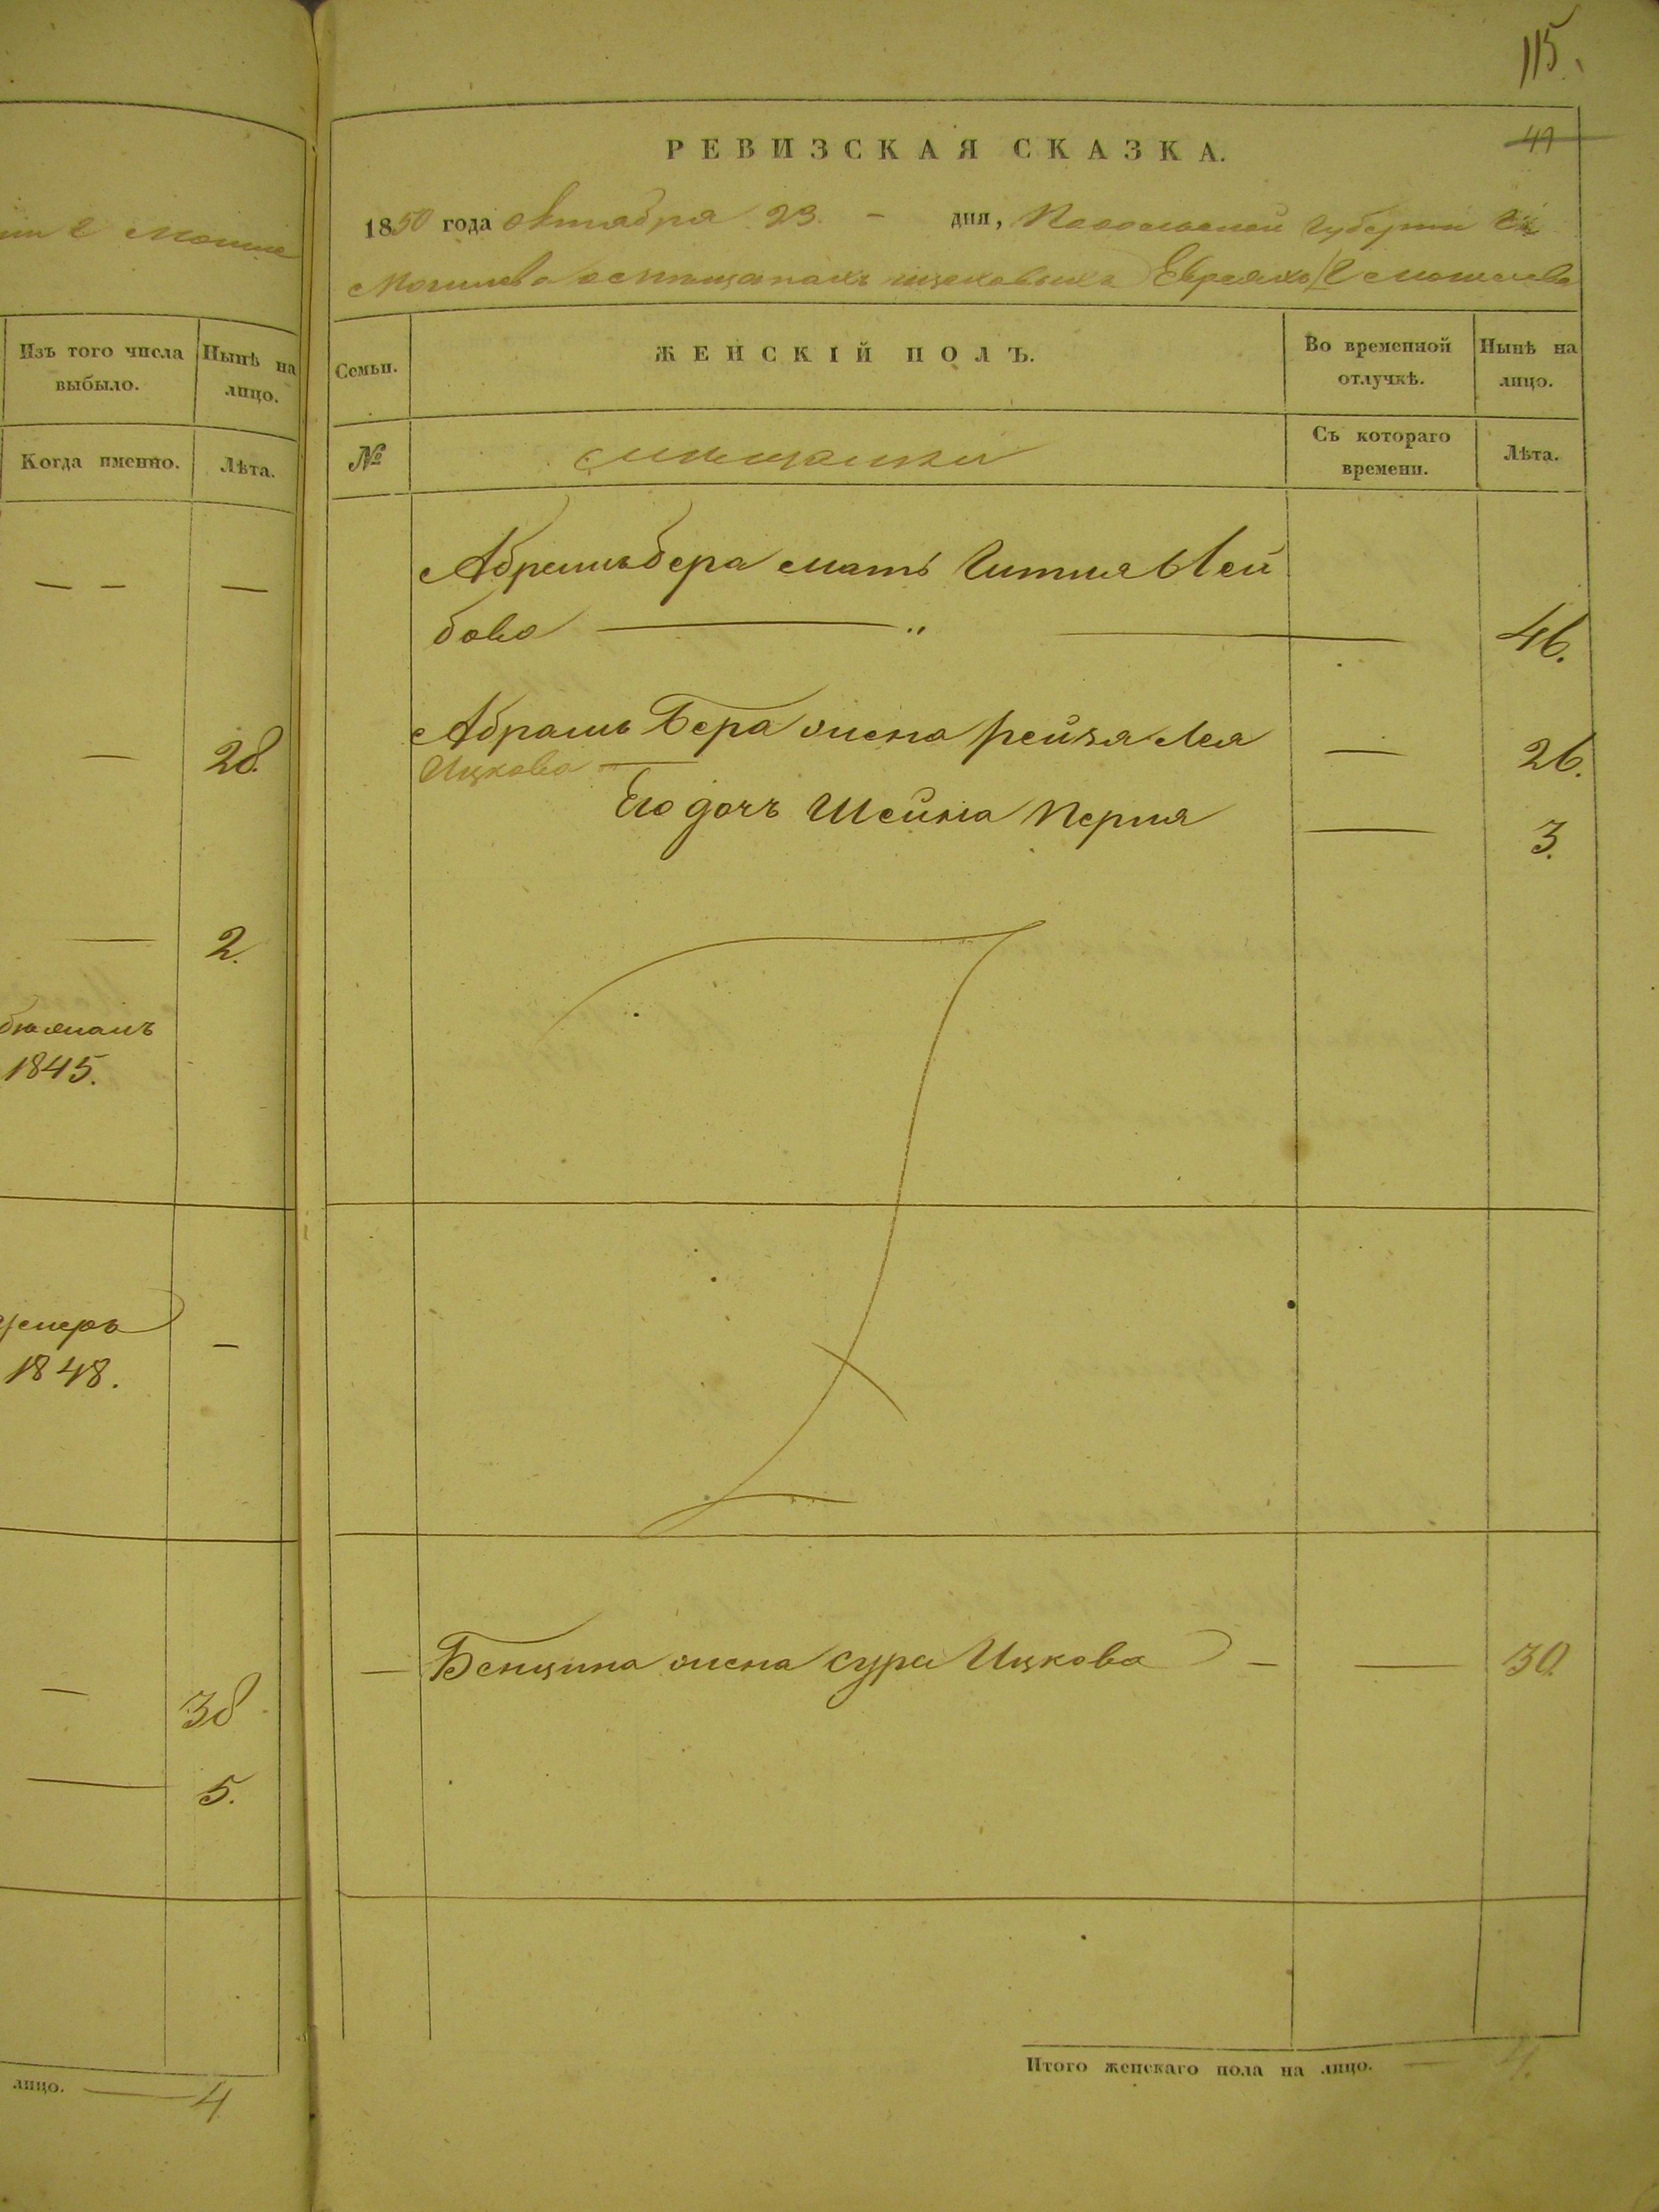 115.
41
РЕВИЗСКАЯ СКАЗКА.
1850 года октября 23 - дня, Подольской Губернии
Могилева о мѣщанахъ цеховыхъ Евреяхъ Г. Могилева
Изъ того числа выбыло.
Нынѣ на лицо.
Когда именно.
Лѣта.
— — —
— 28.
— 2.
1845.
1848. —
— 38
— 5.
лицо. — 4
Семьи.
ЖЕНСКІЙ ПОЛЪ.
Во временной отлучкѣ.
Нынѣ на лицо.
№
мѣщанки
Съ котораго времени.
Лѣта.
Абрамъ бера мать Гитля Лей
бова — " — — 46.
Абрамъ Бера жена Рейзя Лея — 26.
Ицкова —
Его дочь Шейна Перля — 3.
— Бенциона жена Сура Ицкова — — 30.
Итого женскаго пола на лицо. — 4.